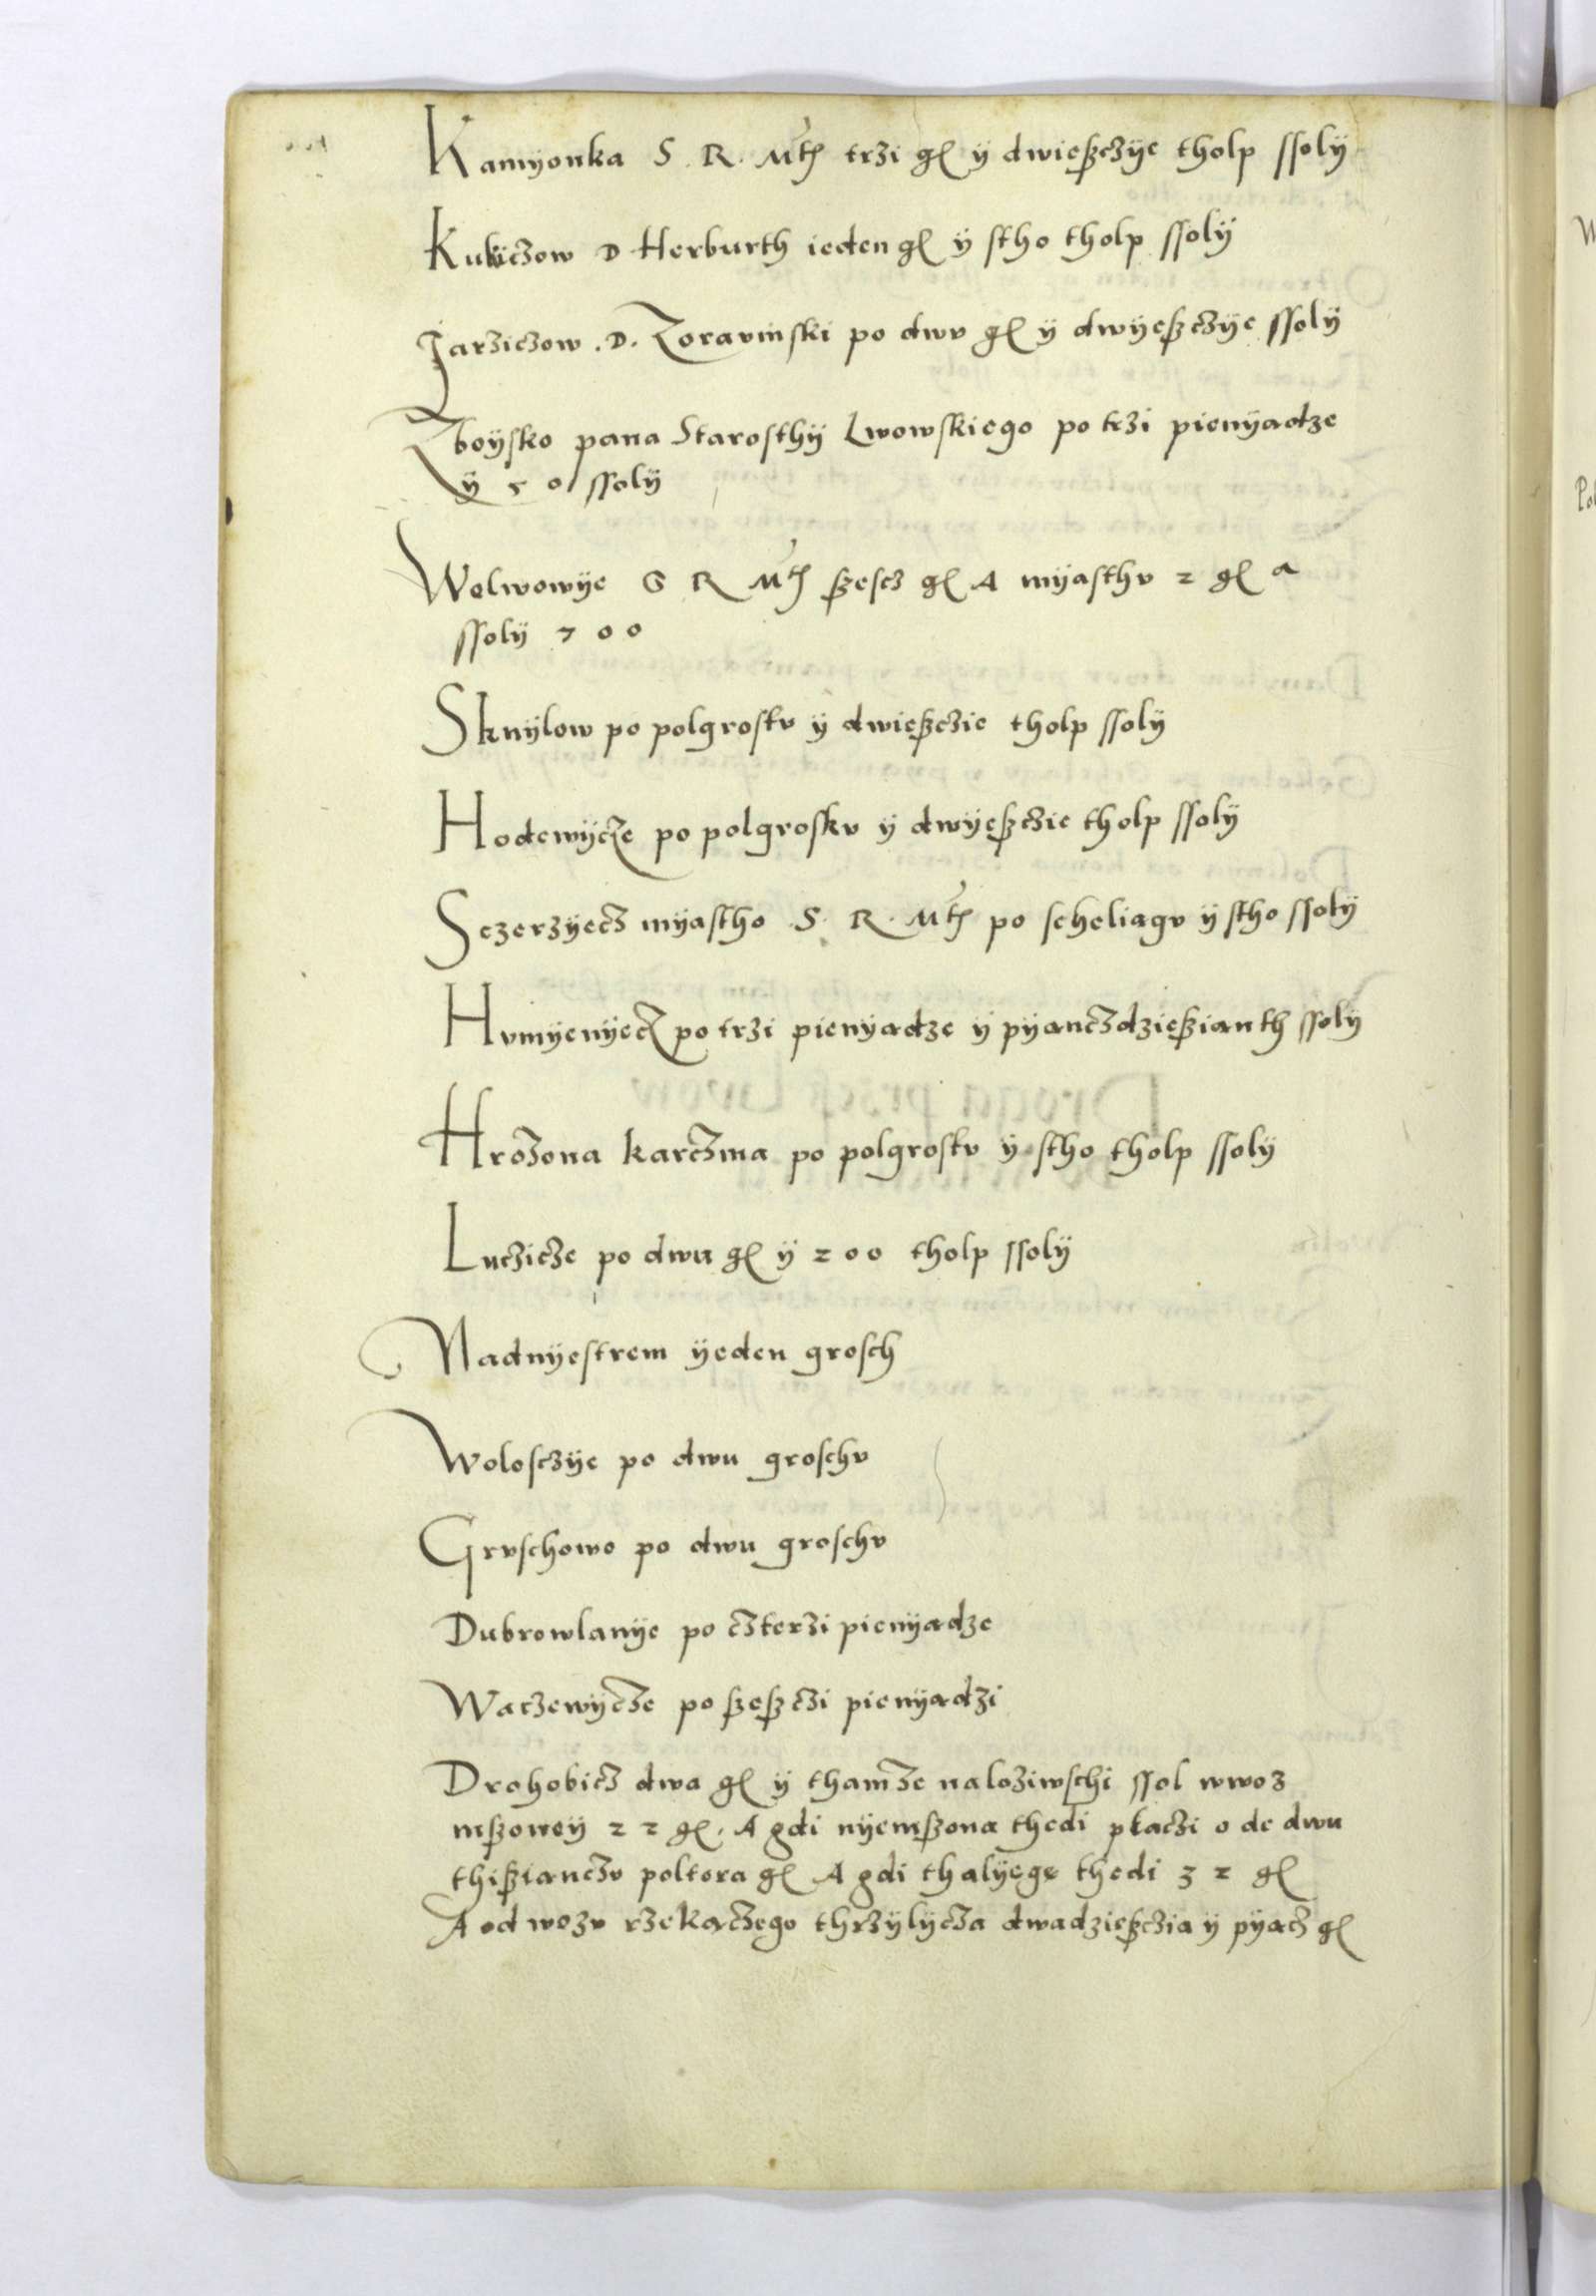 Kamyonka S. R. Mth trzi gl ÿ dwieszczÿe tholp ssolÿ
Kulиczow D Herburth ieden gl ÿ stho tholp ssolÿ
Jarziczow . D . Zoravinski po dwv gl ÿ dwÿeszczÿe ssolÿ
Zboÿsko pana Starosthÿ Lwowskiego po trzi pienÿadze
ÿ 50 ssolÿ
Welwowÿe S R Mth szescz gl A mÿasthv 2 gl a
ssolÿ 200
Sknÿlow po polgrosku ÿ dwieszczie tholp ssolÿ
Hodowÿcze po polgroskv ÿ dwÿeszczie tholp ssolÿ
Sczerzyecz mÿastho S. R. Mth po scheliagv ÿ stho ssolÿ
Hvmÿenÿecz po trzi pienÿadze ÿ pÿanczdzieszianth ssolÿ
Hrozona karczma po polgroskv ÿ stho tholp ssolÿ
Luczicze po dwu gl ÿ 200 tholp ssolÿ
Nadnÿestrem ÿeden grosch
Woloszczÿe po dwu groschv
Grvschowo po dwu groschv
Dubrowlanÿe po czterzi pienÿadze
Waczewÿcze po szeszczi pienÿadzi
Drohobicz dwa gl ÿ thamze naloziwschi ssol wwoz
mszoneÿ 22 gl. A gdi nÿemszona thedi płaczi ode dwu
thiszianczv poltora gl A gdi thalÿege thedi 32 gl
A od wozv rzekaczego thrzÿlÿcza dwadzieszczia ÿ pÿacz gl